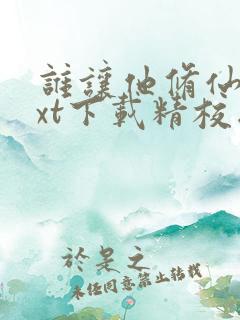 誰讓他脩仙
xt下載精校
於是之
未經同意禁止轉載